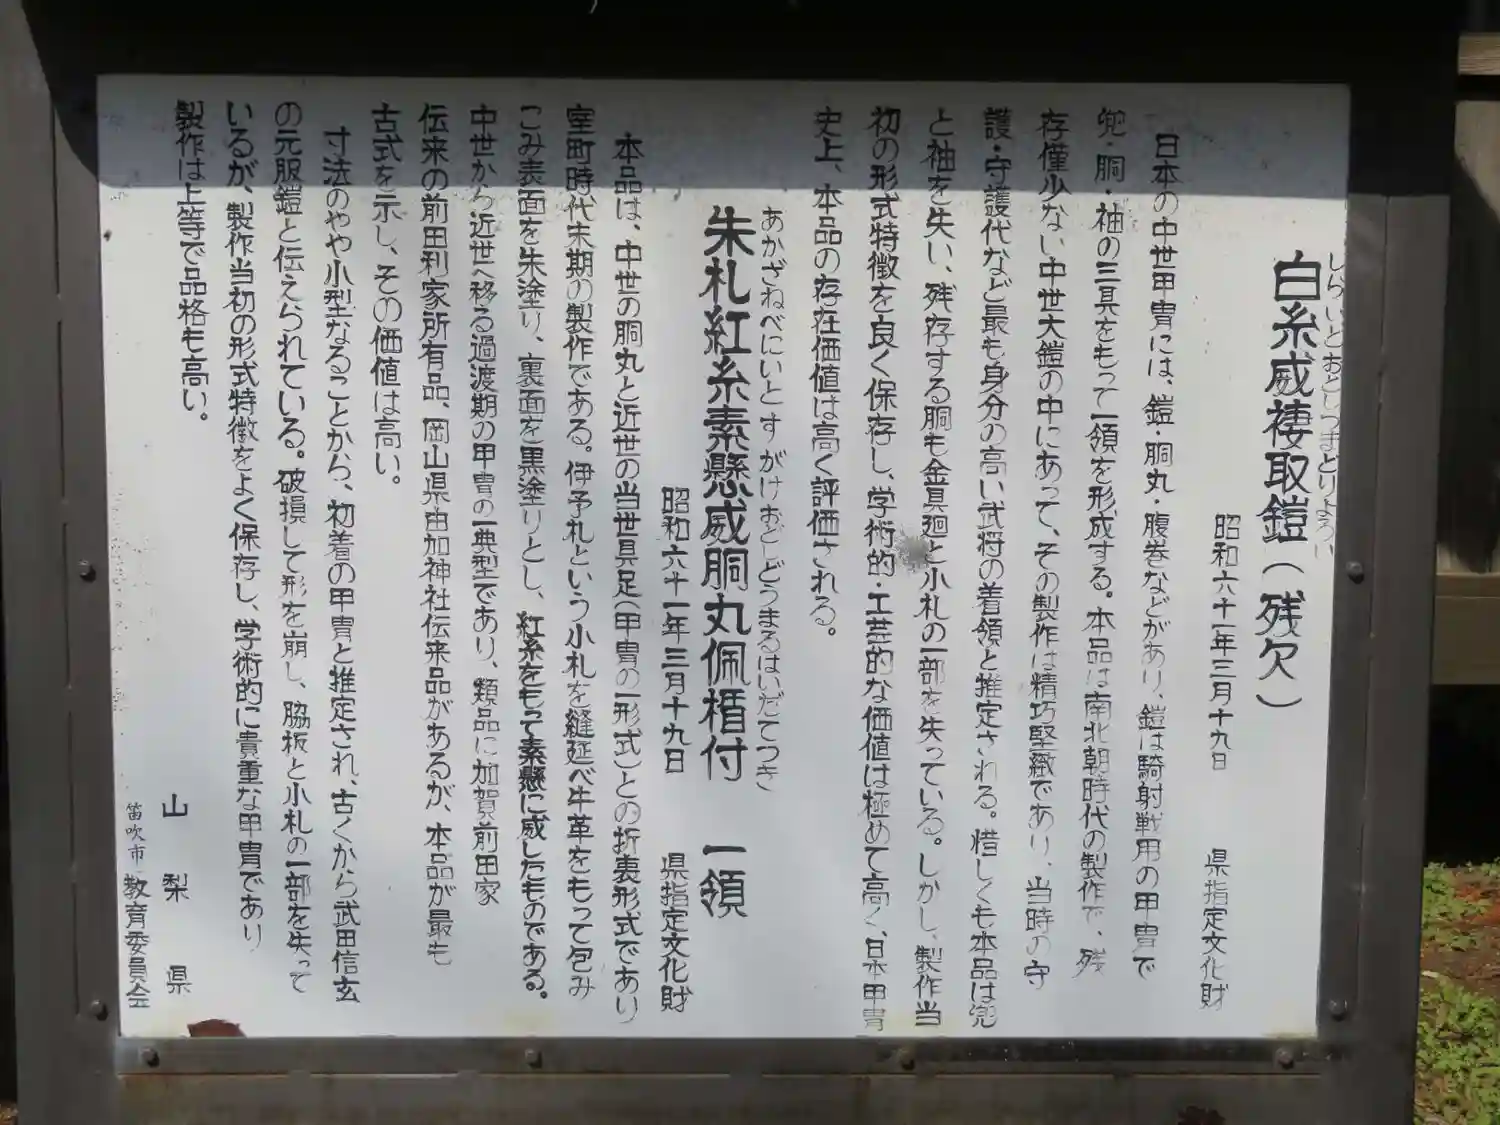 しらいとおとしつまどりよろい
白糸威褄取鎧(残欠)
昭和六十一年三月十九日 県指定文化財
日本の中世甲冑には、鎧・胴丸・腹巻などがあり、鎧は騎射戦用の甲冑で
兜・胴・袖の三具をもって一領を形成する。本品は南北朝時代の製作で、残
存僅少ない中世大鎧の中にあって、その製作は精巧堅緻であり、当時の守
護・守護代など最も身分の高い武将の着領と推定される。惜しくも本品は兜
と袖を失い、残存する胴も金具廻と小札の一部を失っている。しかし、製作当
初の形式特徴を良く保存し、学術的・工芸的な価値は極めて高く、日本甲冑
史上、本品の存在価値は高く評価される。
あかざねべにいとすがけおどしどうまるはいだてつき
朱札紅糸素懸威胴丸佩楯付 一領
昭和六十一年三月十九日 県指定文化財
本品は、中世の胴丸と近世の当世具足(甲冑の一形式)との折衷形式であり
室町時代末期の製作である。伊予札という小札を縫延べ牛革をもって包み
こみ表面を朱塗り、裏面を黒塗りとし、紅糸をもって素懸に威したものである。
中世から近世へ移る過渡期の甲冑の一典型であり、類品に加賀前田家
伝来の前田利家所有品、岡山県由加神社伝来品があるが、本品が最も
古式を示し、その価値は高い。
寸法のやや小型なることから、初着の甲冑と推定され、古くから武田信玄
の元服鎧と伝えられている。破損して形を崩し、脇板と小札の一部を失って
いるが、製作当初の形式特徴をよく保存し、学術的に貴重な甲冑であり
製作は上等で品格も高い。
山梨県
笛吹市教育委員会